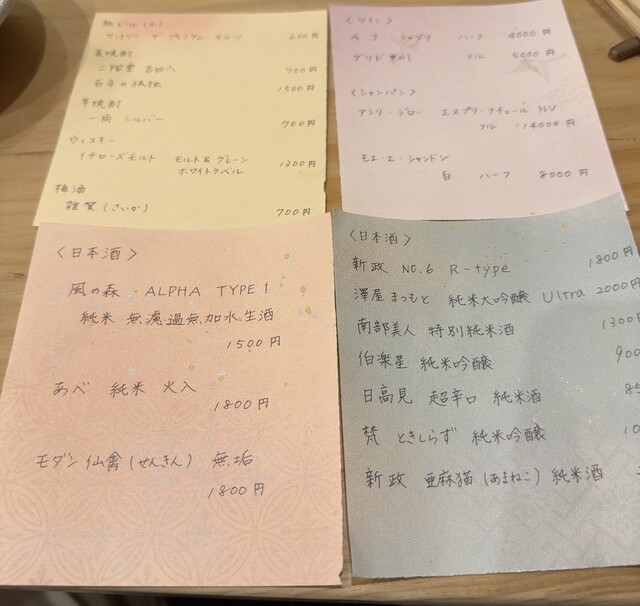 瓶ビール(小)
サントリー ザ プレミアム モルツ 600円
麦焼酎
二階堂 吉四六 700円
百年の孤独 1500円
芋焼酎
一尚 シルバー 700円
ウィスキー
イチローズモルト モルト&グレーン
ホワイトラベル 1300円
梅酒
雑賀(さいか) 700円
〈ワイン〉
シャブリ ハーフ 4000円
グリド フル 5000円
〈シャンパン〉
アンリ・ジロー エスプリ ナチュール NV
フル 14000円
モエ・エ・シャンドン
白 ハーフ 8000円
〈日本酒〉
風の森 ALPHA TYPE 1
純米 無濾過無加水生酒
1500円
あべ 純米 火入
1800円
モダン仙禽(せんきん) 無垢
1800円
〈日本酒〉
新政 NO.6 R-type 1800円
澤屋まつもと 純米大吟醸 Ultra 2000円
南部美人 特別純米酒 1300円
伯楽星 純米吟醸 900
日高見 超辛口 純米酒 85
梵 ときしらず 純米吟醸 10
新政 亜麻猫(あまねこ) 純米酒